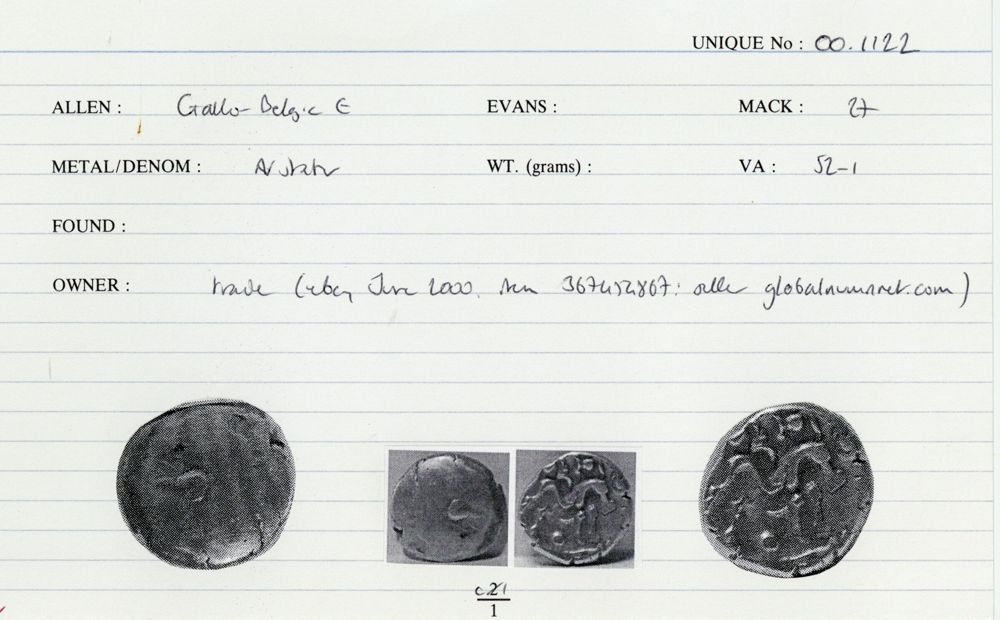 UNIQUE No : 00.1122
ALLEN : Gallo-Belgic E EVANS : MACK : 27
METAL/DENOM : AV stater WT. (grams) : VA : 52-1
FOUND :
OWNER : trade (ebay June 2000. item 367452867: seller globalnumnet.com)
c.21
1